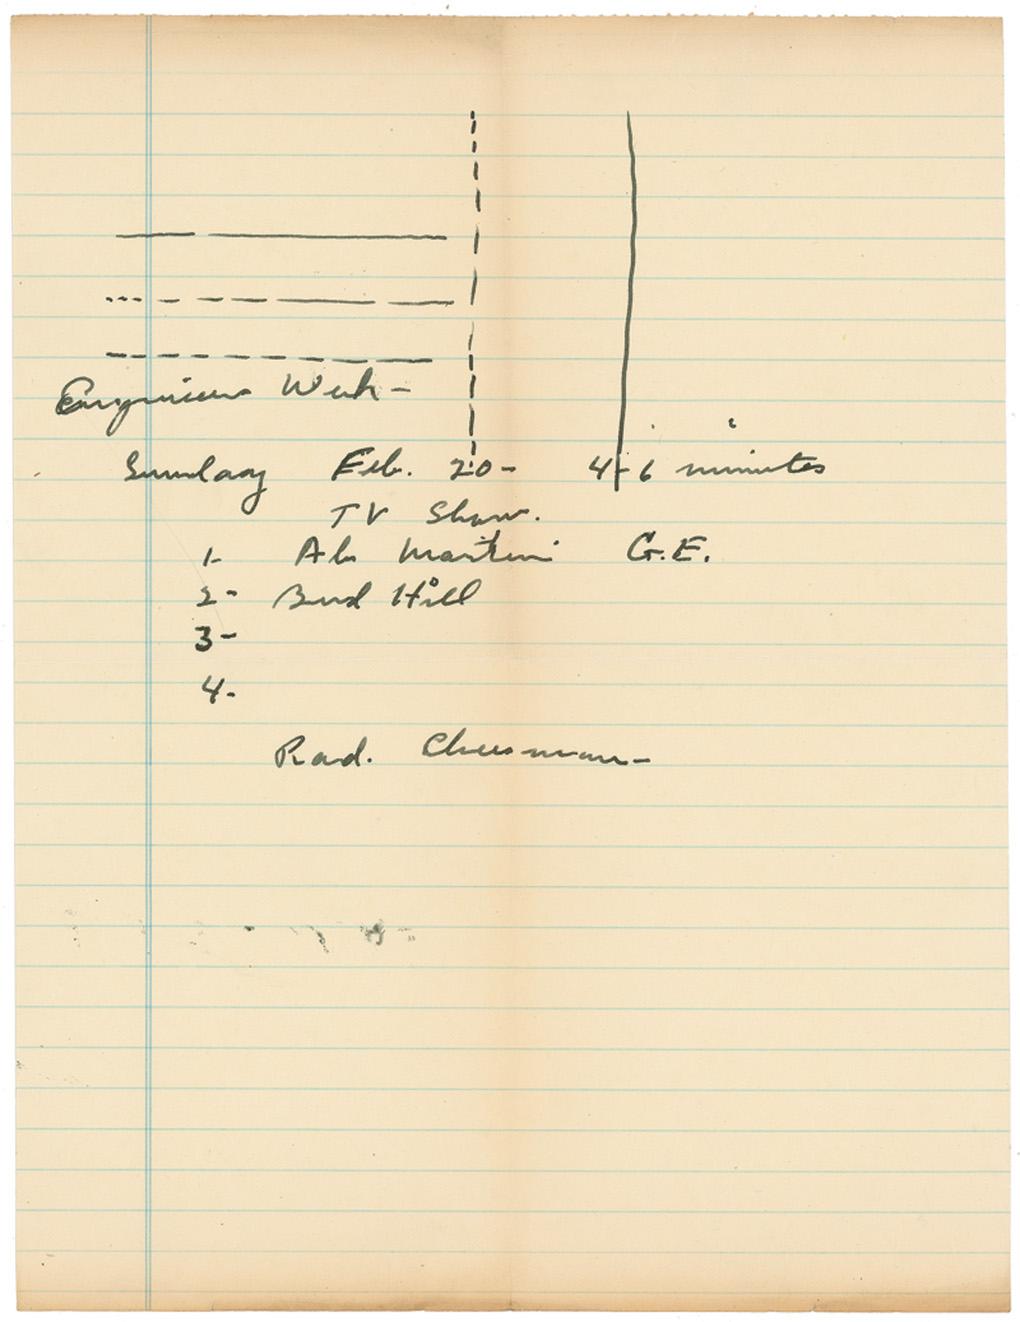 Engineers Week -
Sunday Feb. 20 - 4-6 minutes
TV Show.
1- Al Martini G.E.
2- Bud Hill
3-
4-
Rad. Cheesman -